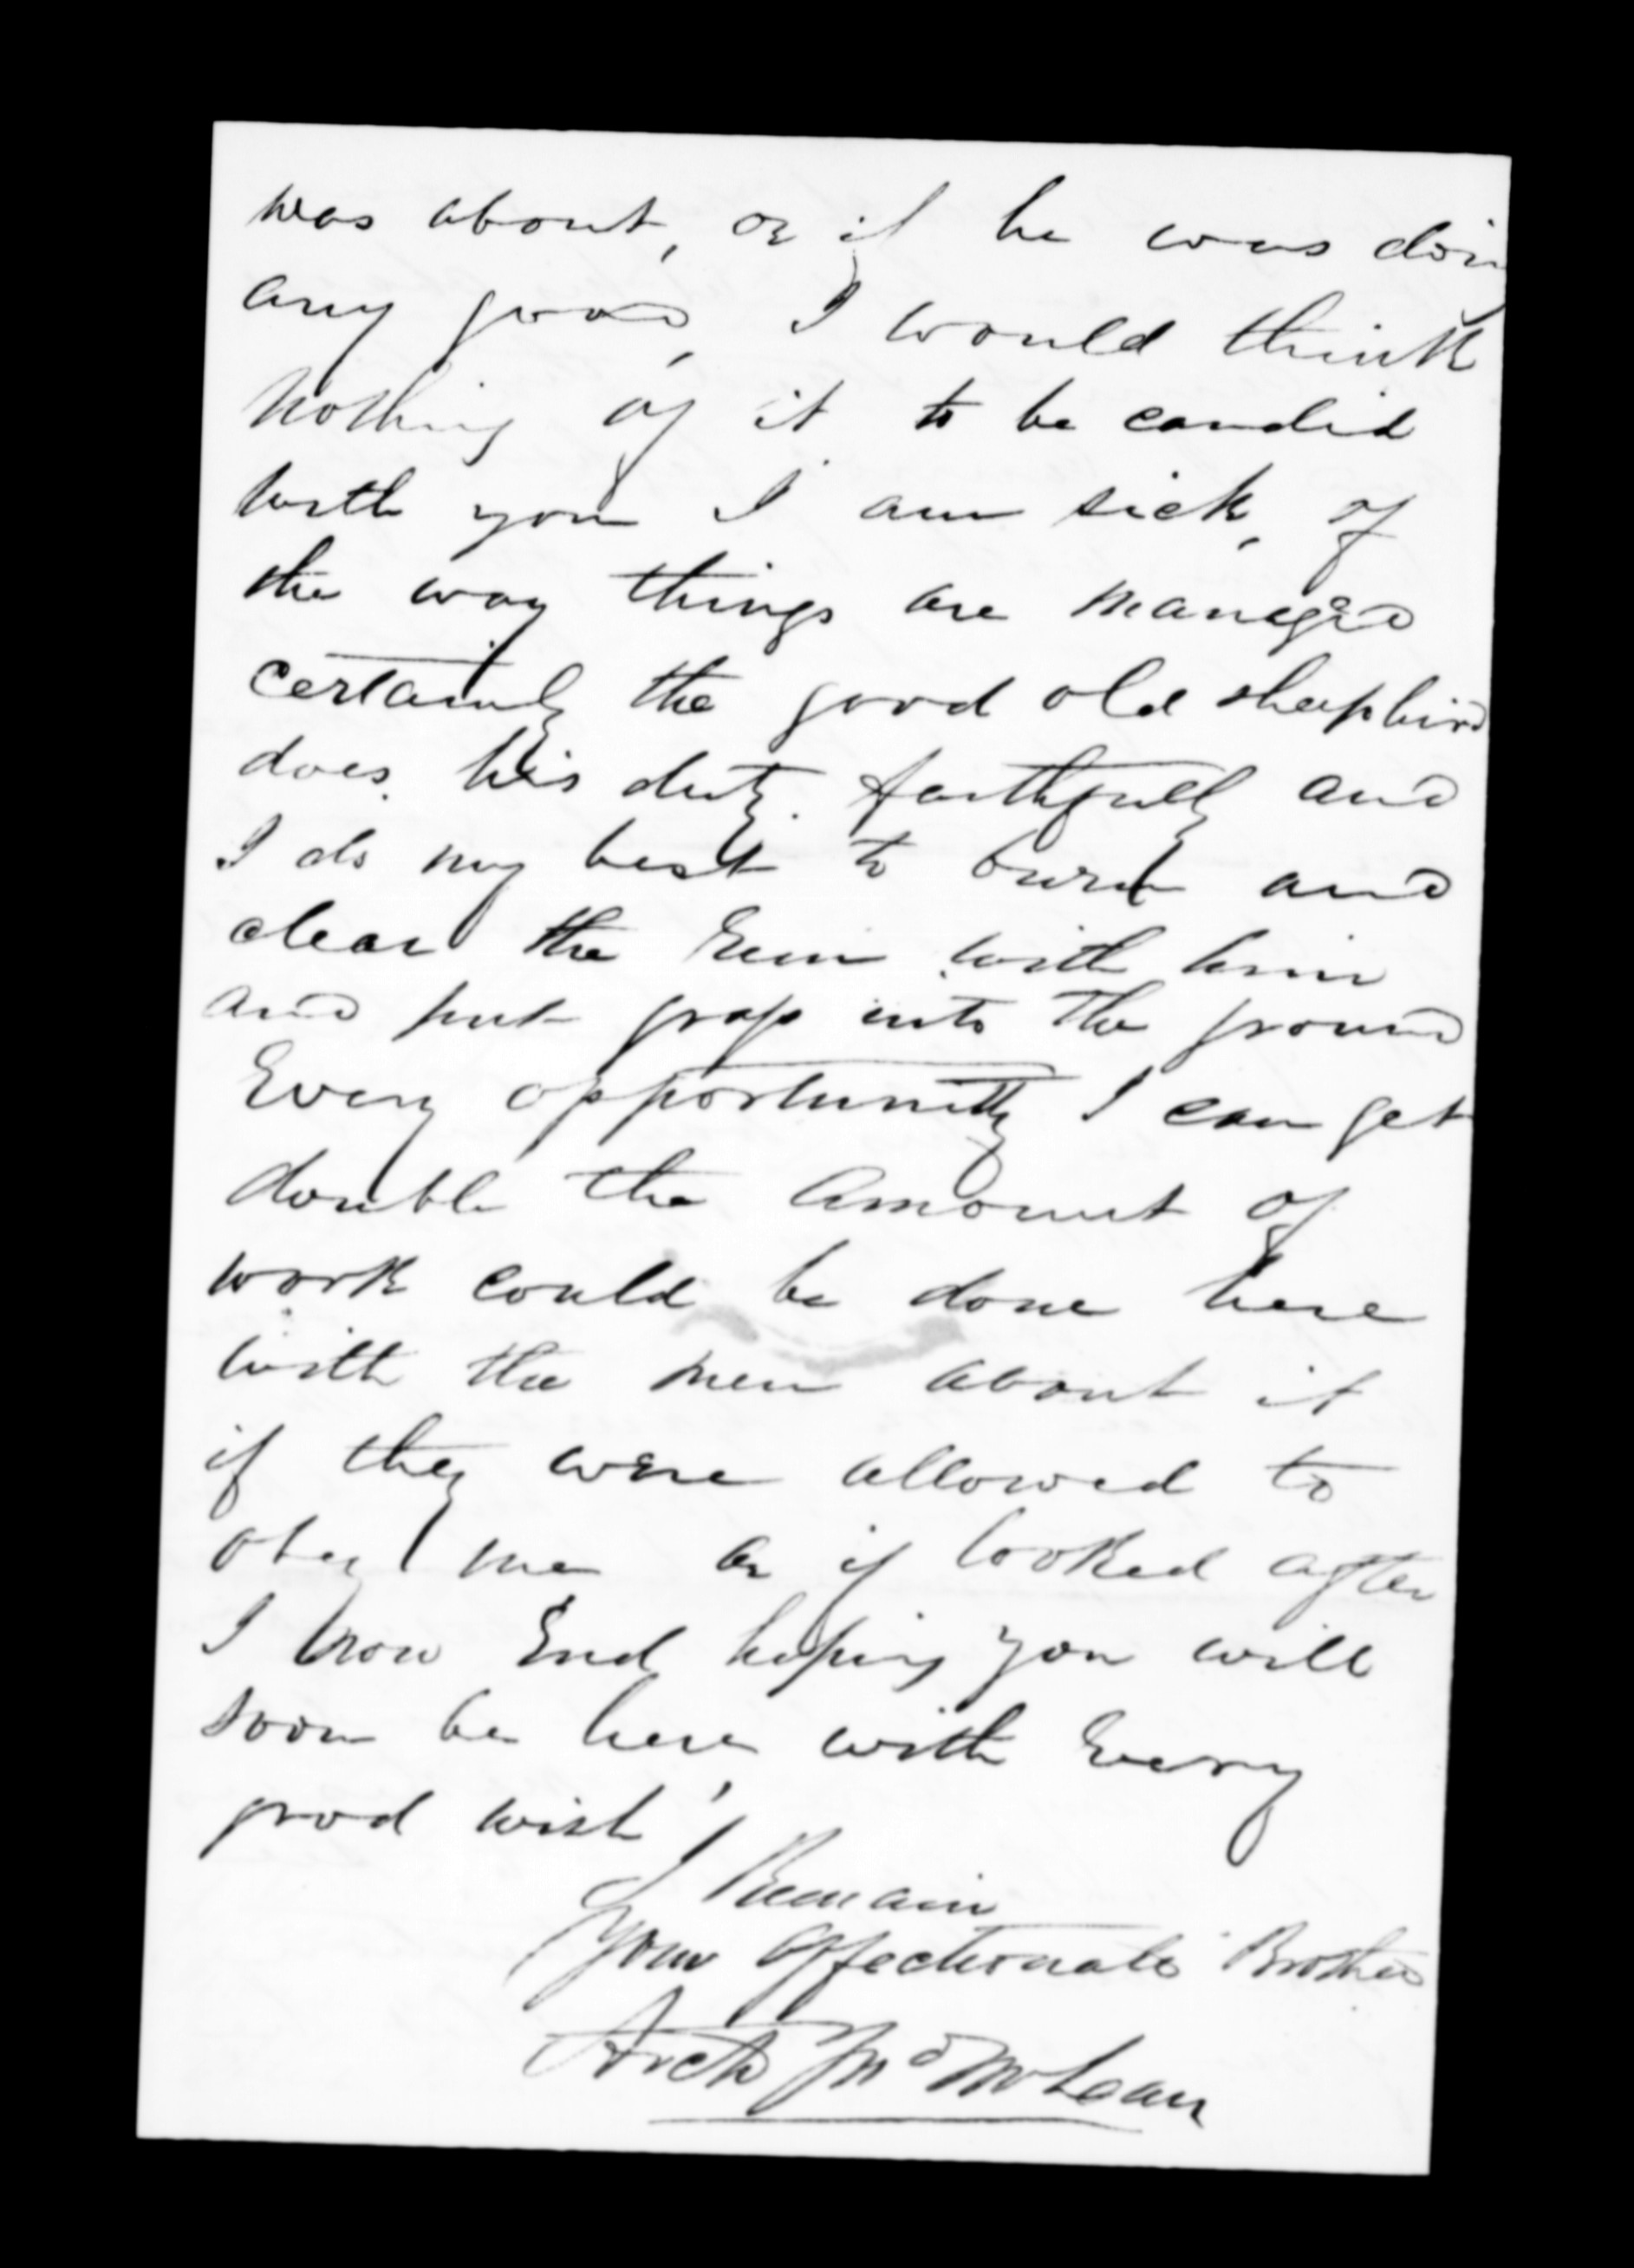 was about, or if he was doing
any good, I would think
nothing of it to be candid
with you I am sick, of
the way things are managed
certainly the good old shephird
does his duty. faithfully and
I do my best to burn and
clear the Run with him
and put grass into the ground
Every opportunitty I can get
double the amount of
work could be done here
with the men about it
if they were allowed to
obey me or if looked after
I now End hoping you will
soon be here with Every
good wish
I Remain
Your affectionate Brother
Archd McLean